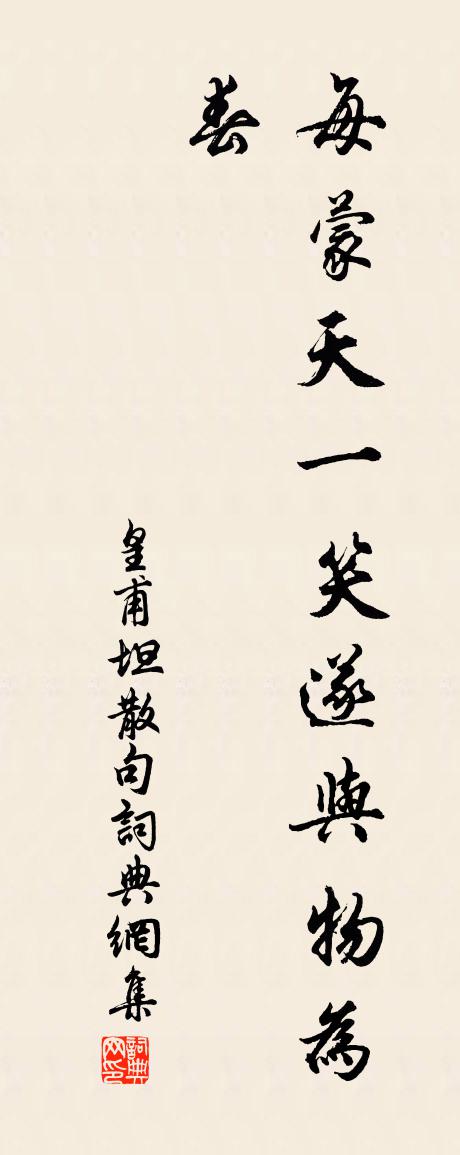 每蒙天一笑遂與物為
春
皇甫坦散句詞典網集
詞典网印